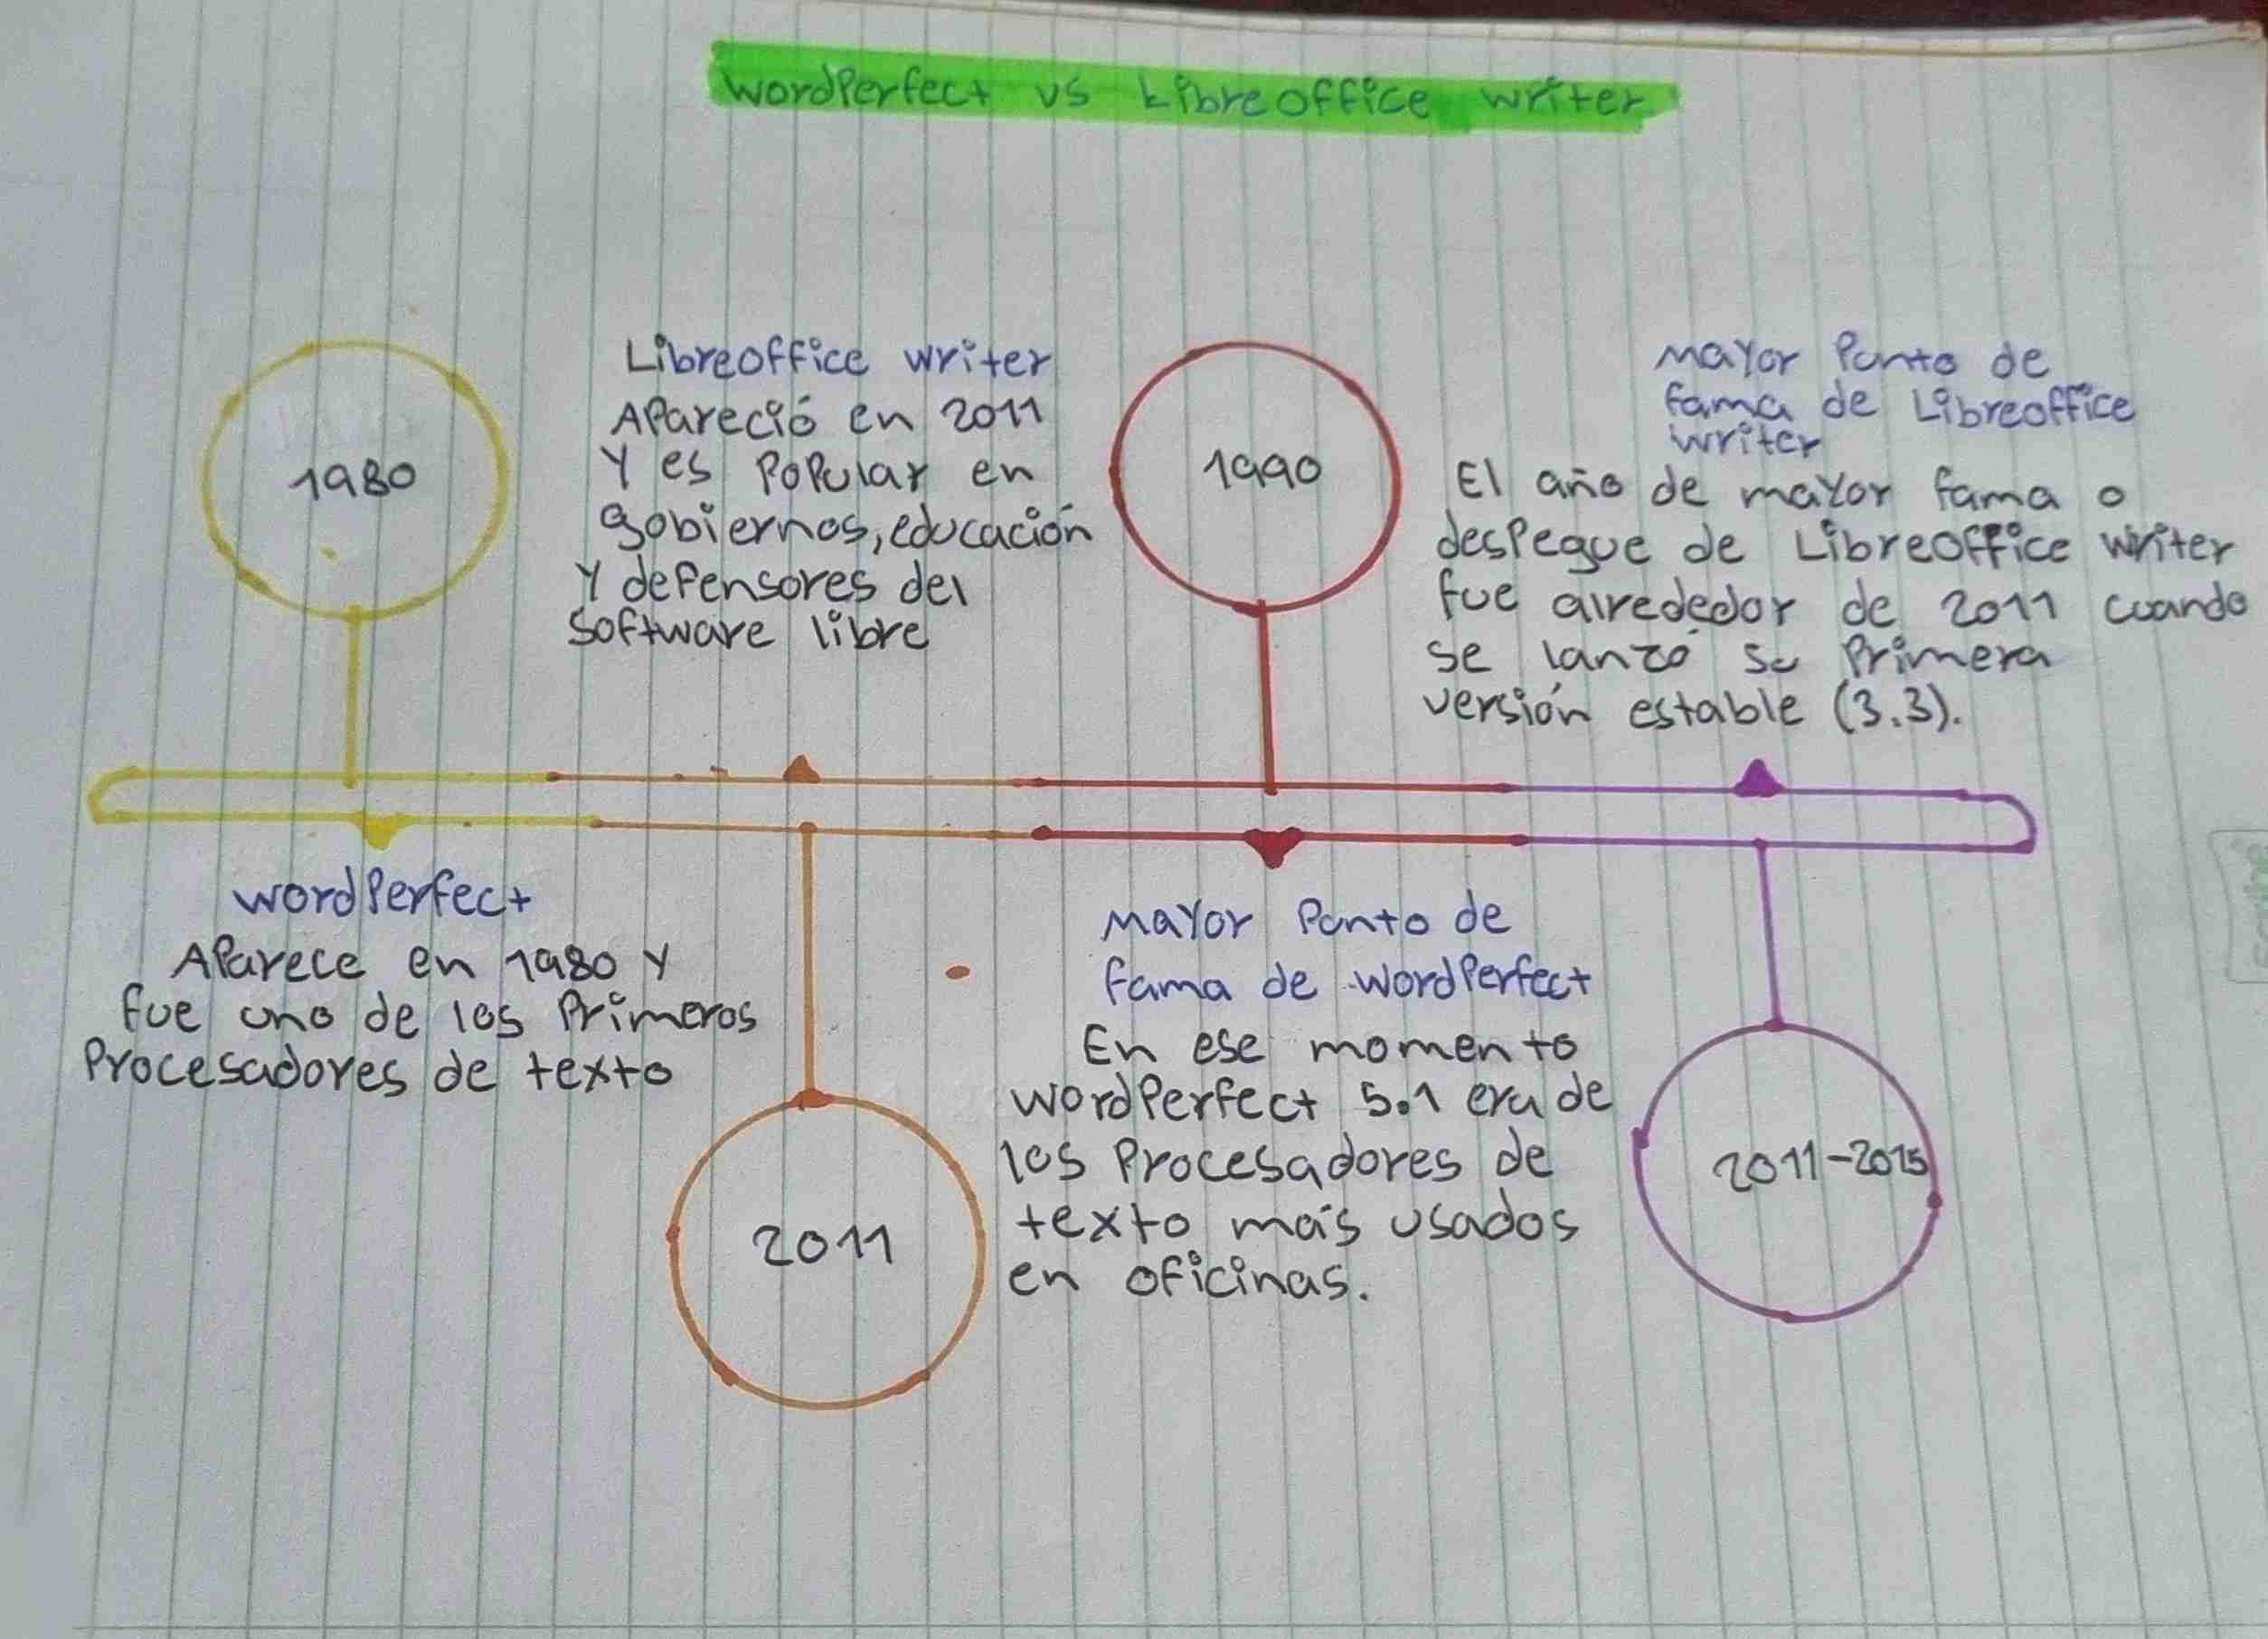 WordPerfect vs Libreoffice writer
1980
Libreoffice writer
Apareció en 2011
Y es Popular en
gobiernos, educación
Y defensores del
Software libre
1990
Mayor Punto de
fama de Libreoffice
writer
El año de mayor fama o
despegue de Libreoffice writer
fue alrededor de 2011 cuando
se lanzó su Primera
versión estable (3.3).
WordPerfect
Aparece en 1980 Y
fue uno de los Primeros
Procesadores de texto
2011
Mayor Punto de
fama de WordPerfect
En ese momento
WordPerfect 5.1 era de
los Procesadores de
texto más usados
en oficinas.
2011-2015